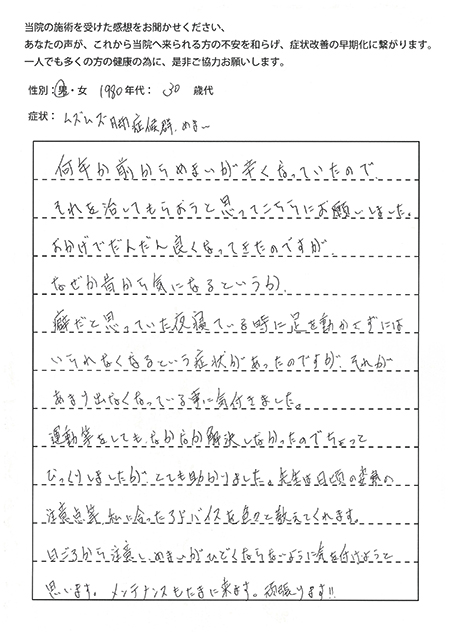 当院の施術を受けた感想をお聞かせください、
あなたの声が、これから当院へ来られる方の不安を和らげ、症状改善の早期化に繋がります。
一人でも多くの方の健康の為に、是非ご協力お願いします。
性別：男・女 1980年代： 30 歳代
症状： ムズムズ脚症候群、めまい
何年か前からめまいが辛くなっていたので
それを治してもらおうと思ってこちらにお願いしました。
おかげでだんだん良くなってきたのですが、
なぜか昔から気になるというか、
癖だと思っていた夜寝ている時に足を動かさずには
いられなくなるという症状があったのですが、それが
あまり出なくなっている事に気付きました。
運動等をしてもなかなか解決しなかったのでちょっと
びっくりしましたが、とても助かりました。先生は日頃の姿勢の
注意点等、私に合ったアドバイスを色々と教えてくれます。
日ごろから注意し、めまいがひどくならないように気を付けようと
思います。メンテナンスもたまに来ます。頑張ります!!